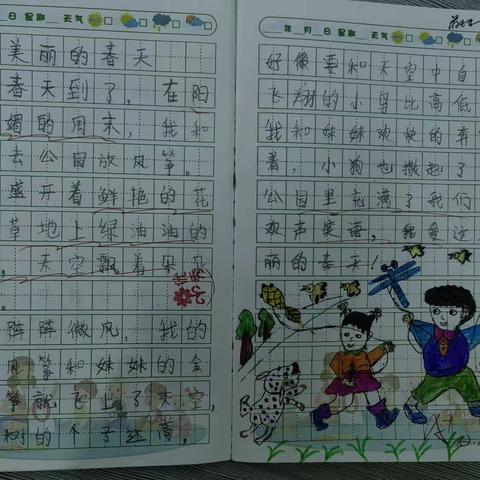 日 星期 天气
美丽的春天
春天到了，在阳
媚的周末，我和
去公园放风筝。
盛开着鲜艳的花
草地上绿油油的
，天空飘着朵朵
。
阵阵微风，我的
风筝和妹妹的金
筝就飞上了天空，
树的个子还高，
年 月 日 星期 天气
好像要和天空中自
飞翔的小鸟比高低
我和妹妹欢快的奔
着，小狗也撒起了
公园里充满了我们
欢声笑语，我爱这
丽的春天！